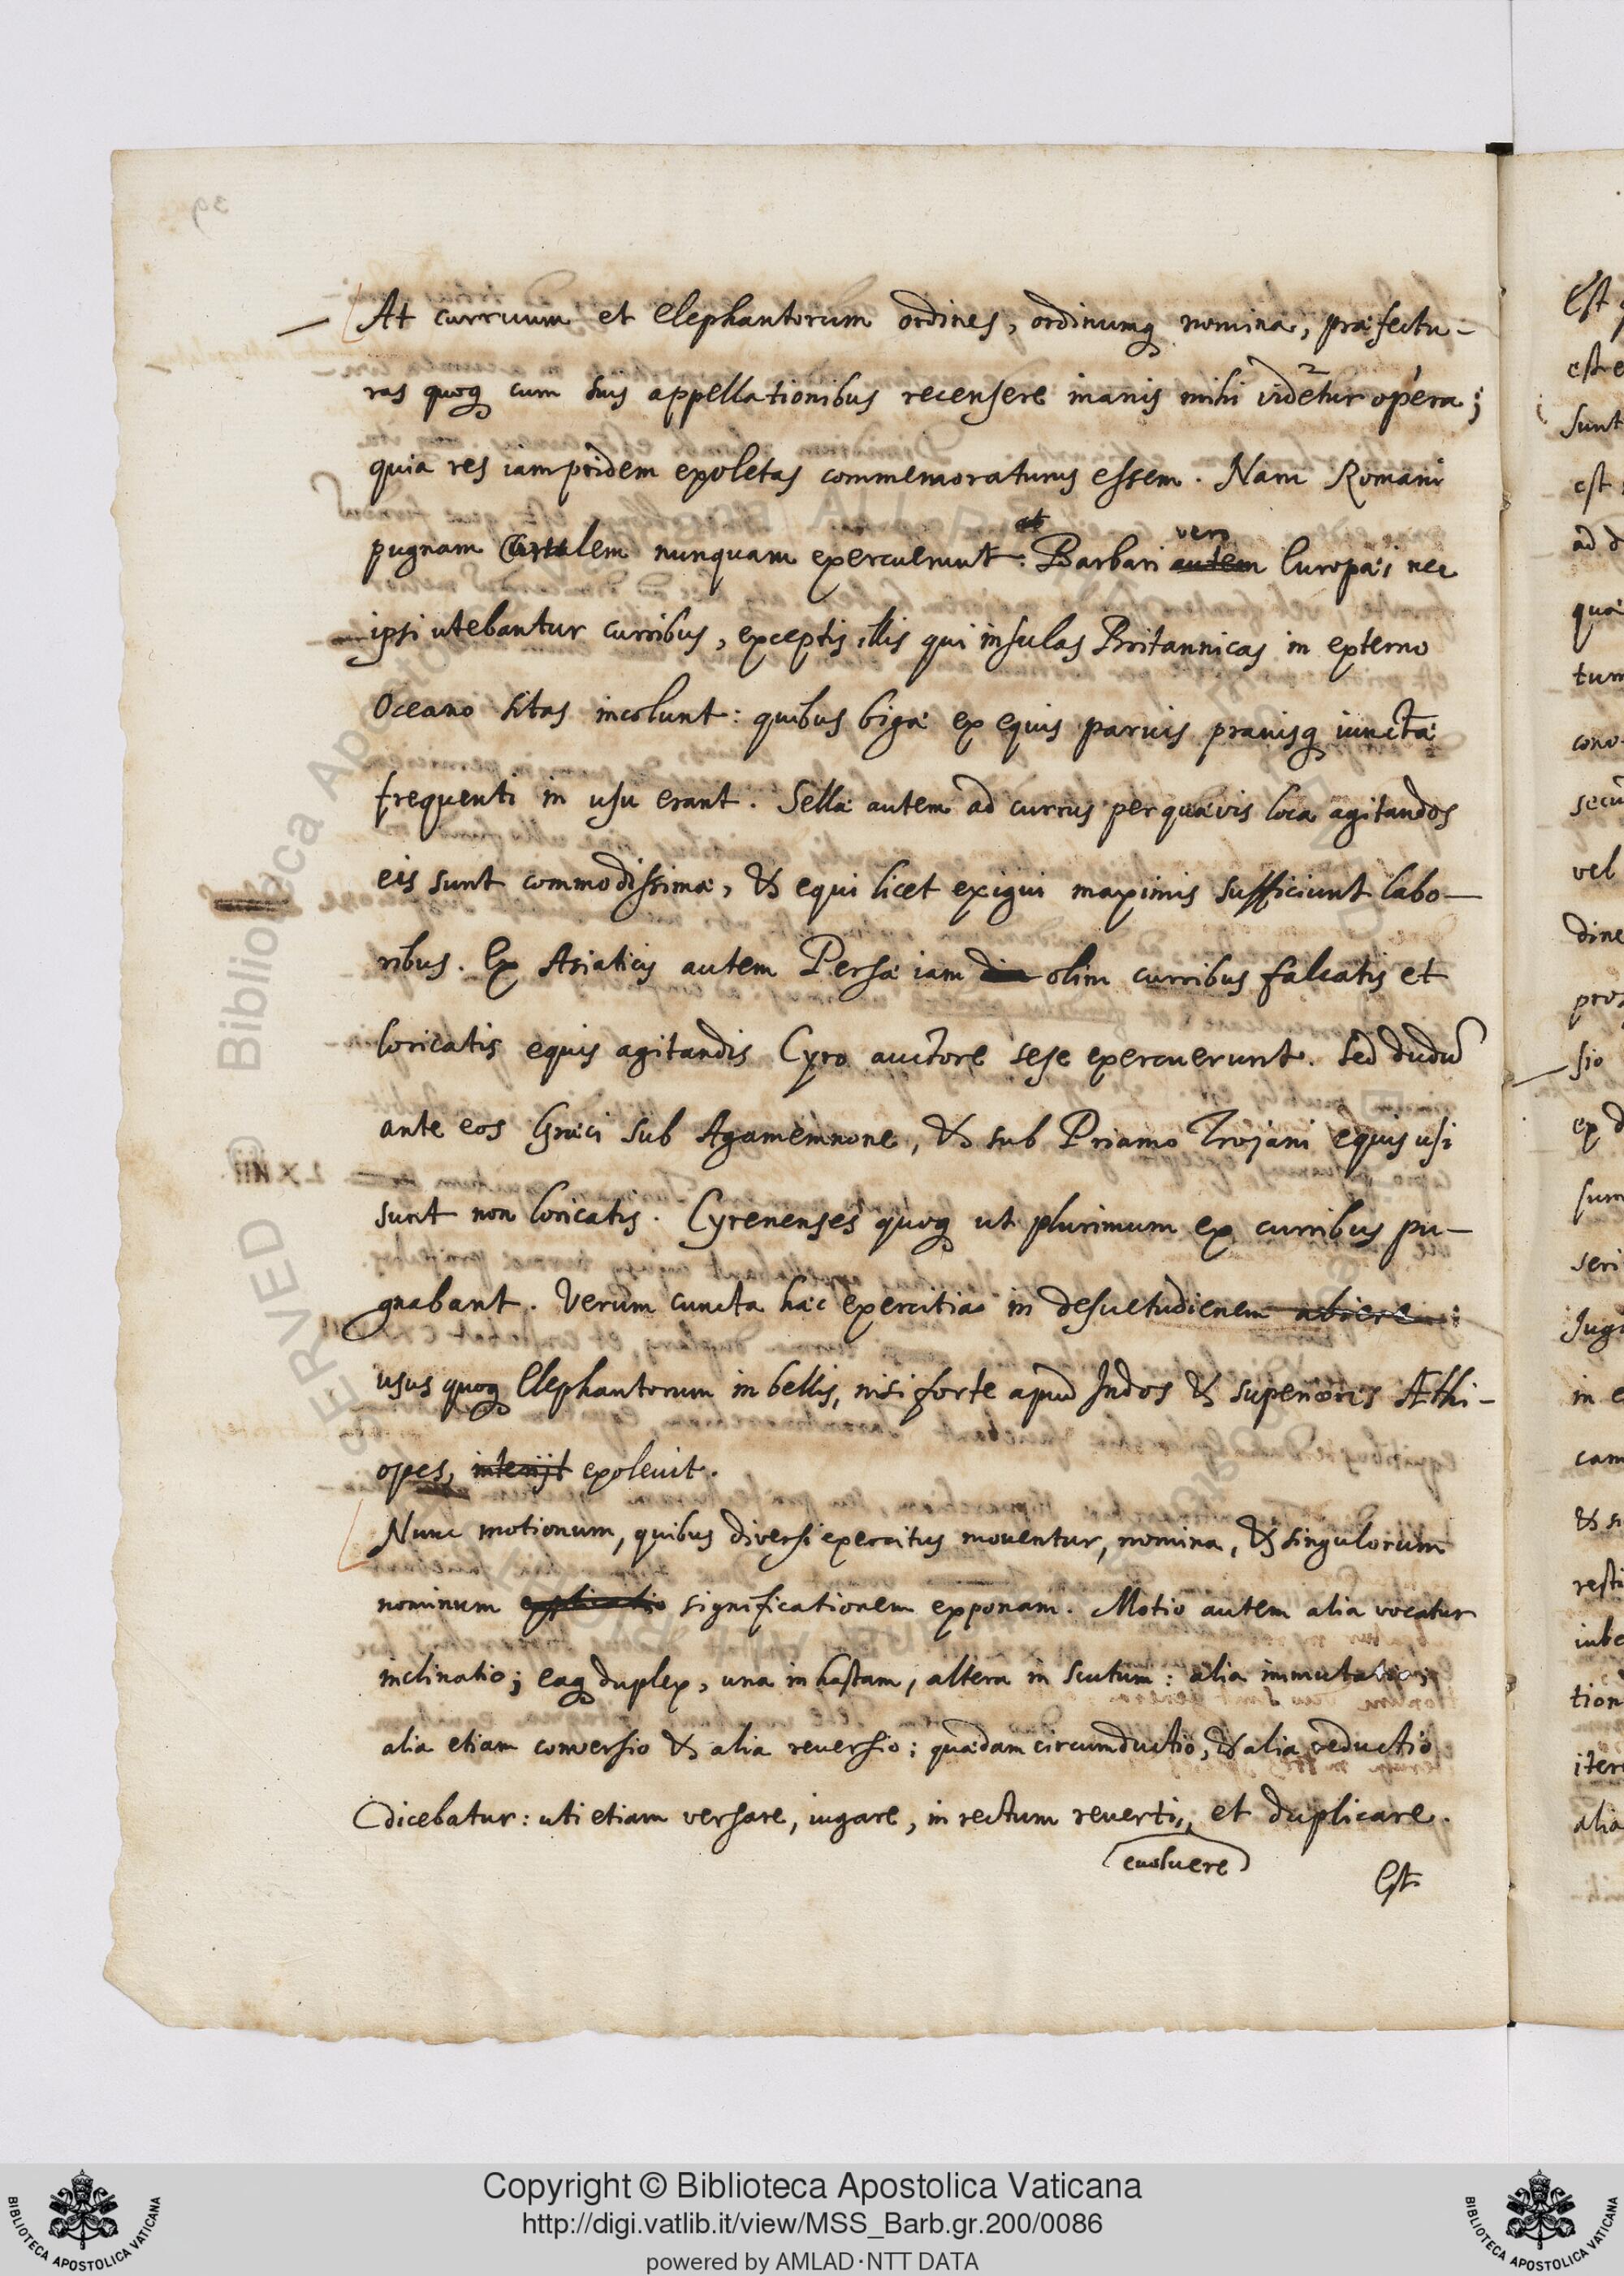 At curruum et elephantorum ordines, ordinumq nomina, præfectu-
ras quoq cum suis appellationibus recensere inanis mihi videtur opera;
quia res iampridem exoletas commemoraturus essem. Nam Romani
vero
pugnam nunquam exercuerunt. Barbari autem Europæi nec
ipsi utebantur curribus, exceptis illis qui insulas Britannicas in externo
Oceano sitas incolunt: quibus bigæ ex equis parvis pravisq iunctæ
frequenti in usu erant. Sellæ autem ad currus per quævis loca agitandos
eis sunt commodissimæ, & equi licet exigui maximis sufficiunt labo-
ribus. Ex Asiaticis autem Persæ iam olim curribus falcatis et
loricatis equis agitandis Cyro auctore sese exercuerunt. Sed dudū
ante eos Græci sub Agamemnone, & sub Priamo Trojani equis usi
sunt non loricatis. Cyrenenses quoq ut plurimum ex curribus pu-
gnabant. Verum cuncta hæc exercitia in desuetudienem abiere:
usus quoq Elephantorum in bellis, nisi forte apud Indos & superiores Æthi-
opes, interijt exolevit.
Nunc motionum, quibus diversi exercitus moventur, nomina, & singulorum
nominum explicatio significationem exponam. Motio autem alia vocatur
inclinatio; eaq duplex, una in hastam, altera in scutum: alia immutatio;
alia etiam conversio & alia reversio; quædam circumductio, & alia reductio
dicebatur: uti etiam versare, iugare, in rectum reverti, et duplicare.
evolvere
Est
Copyright © Biblioteca Apostolica Vaticana
http://digi.vatlib.it/view/MSS_Barb.gr.200/0086
powered by AMLAD·NTT DATA
BIBLIOTECA APOSTOLICA VATICANA
BIBLIOTECA APOSTOLICA VATICANA